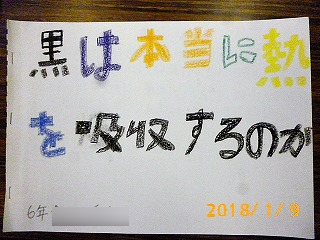 黒は本当に熱
を吸収するのか
6年
2018/1/9